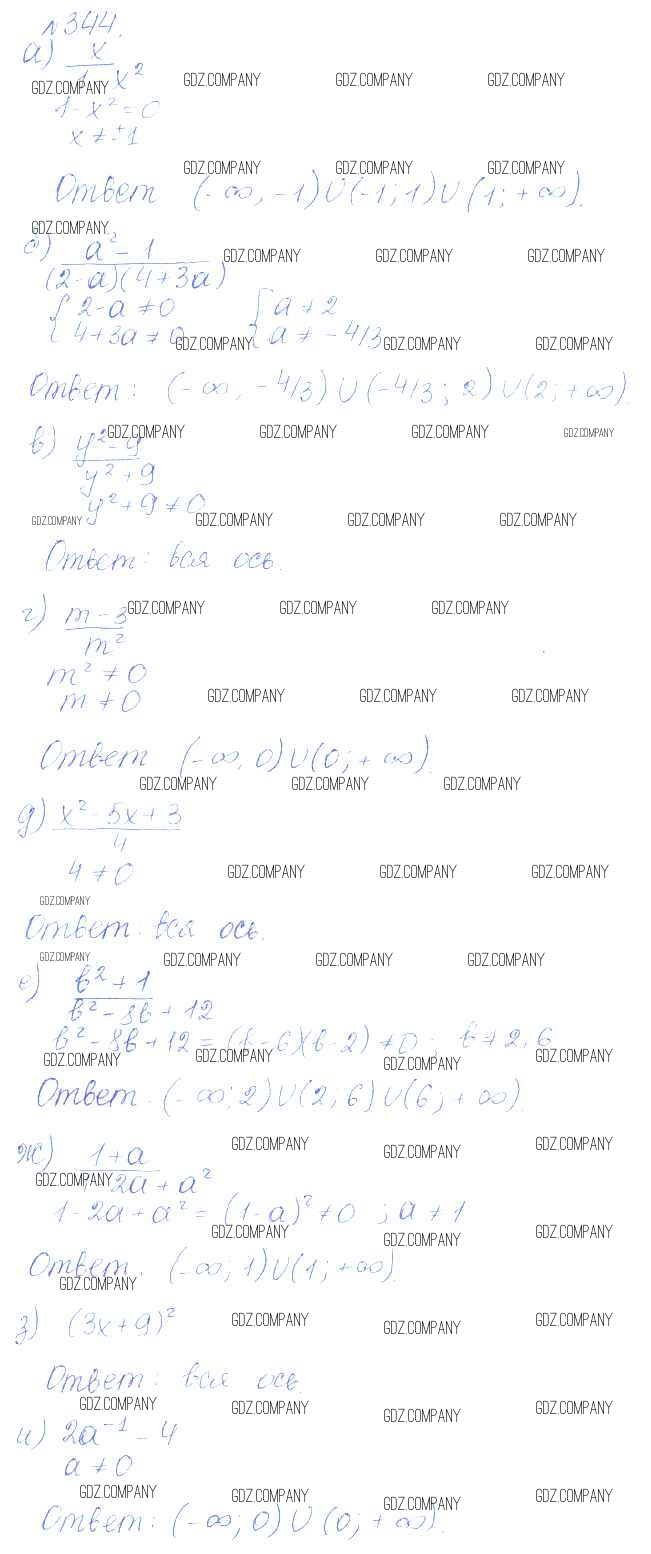 №344.
а) x
1 - x²
1 - x² = 0
x ≠ ±1
Ответ (-∞, -1)∪(-1; 1)∪(1; +∞).
a² - 1
(2-a)(4+3a)
{ 2-a ≠ 0 { a ≠ 2
{ 4+3a ≠ 0 { a ≠ -4/3
Ответ: (-∞, -4/3)∪(-4/3; 2)∪(2; +∞).
в) y² - 9
y² + 9
y² + 9 ≠ 0
Ответ: вся ось.
г) m - 3
m²
m² ≠ 0
m ≠ 0
Ответ (-∞, 0)∪(0; +∞).
д) x² - 5x + 3
4
4 ≠ 0
Ответ. вся ось.
е) b² + 1
b² - 8b + 12
b² - 8b + 12 = (b-6)(b-2) ≠ 0; b ≠ 2, 6
Ответ. (-∞; 2)∪(2; 6)∪(6; +∞).
ж) 1 + a
1 - 2a + a²
1 - 2a + a² = (1-a)² ≠ 0 ; a ≠ 1
Ответ. (-∞; 1)∪(1; +∞).
з) (3x+9)²
Ответ: вся ось.
и) 2a⁻¹ - 4
a ≠ 0
Ответ: (-∞; 0)∪(0; +∞).
GDZ.COMPANY